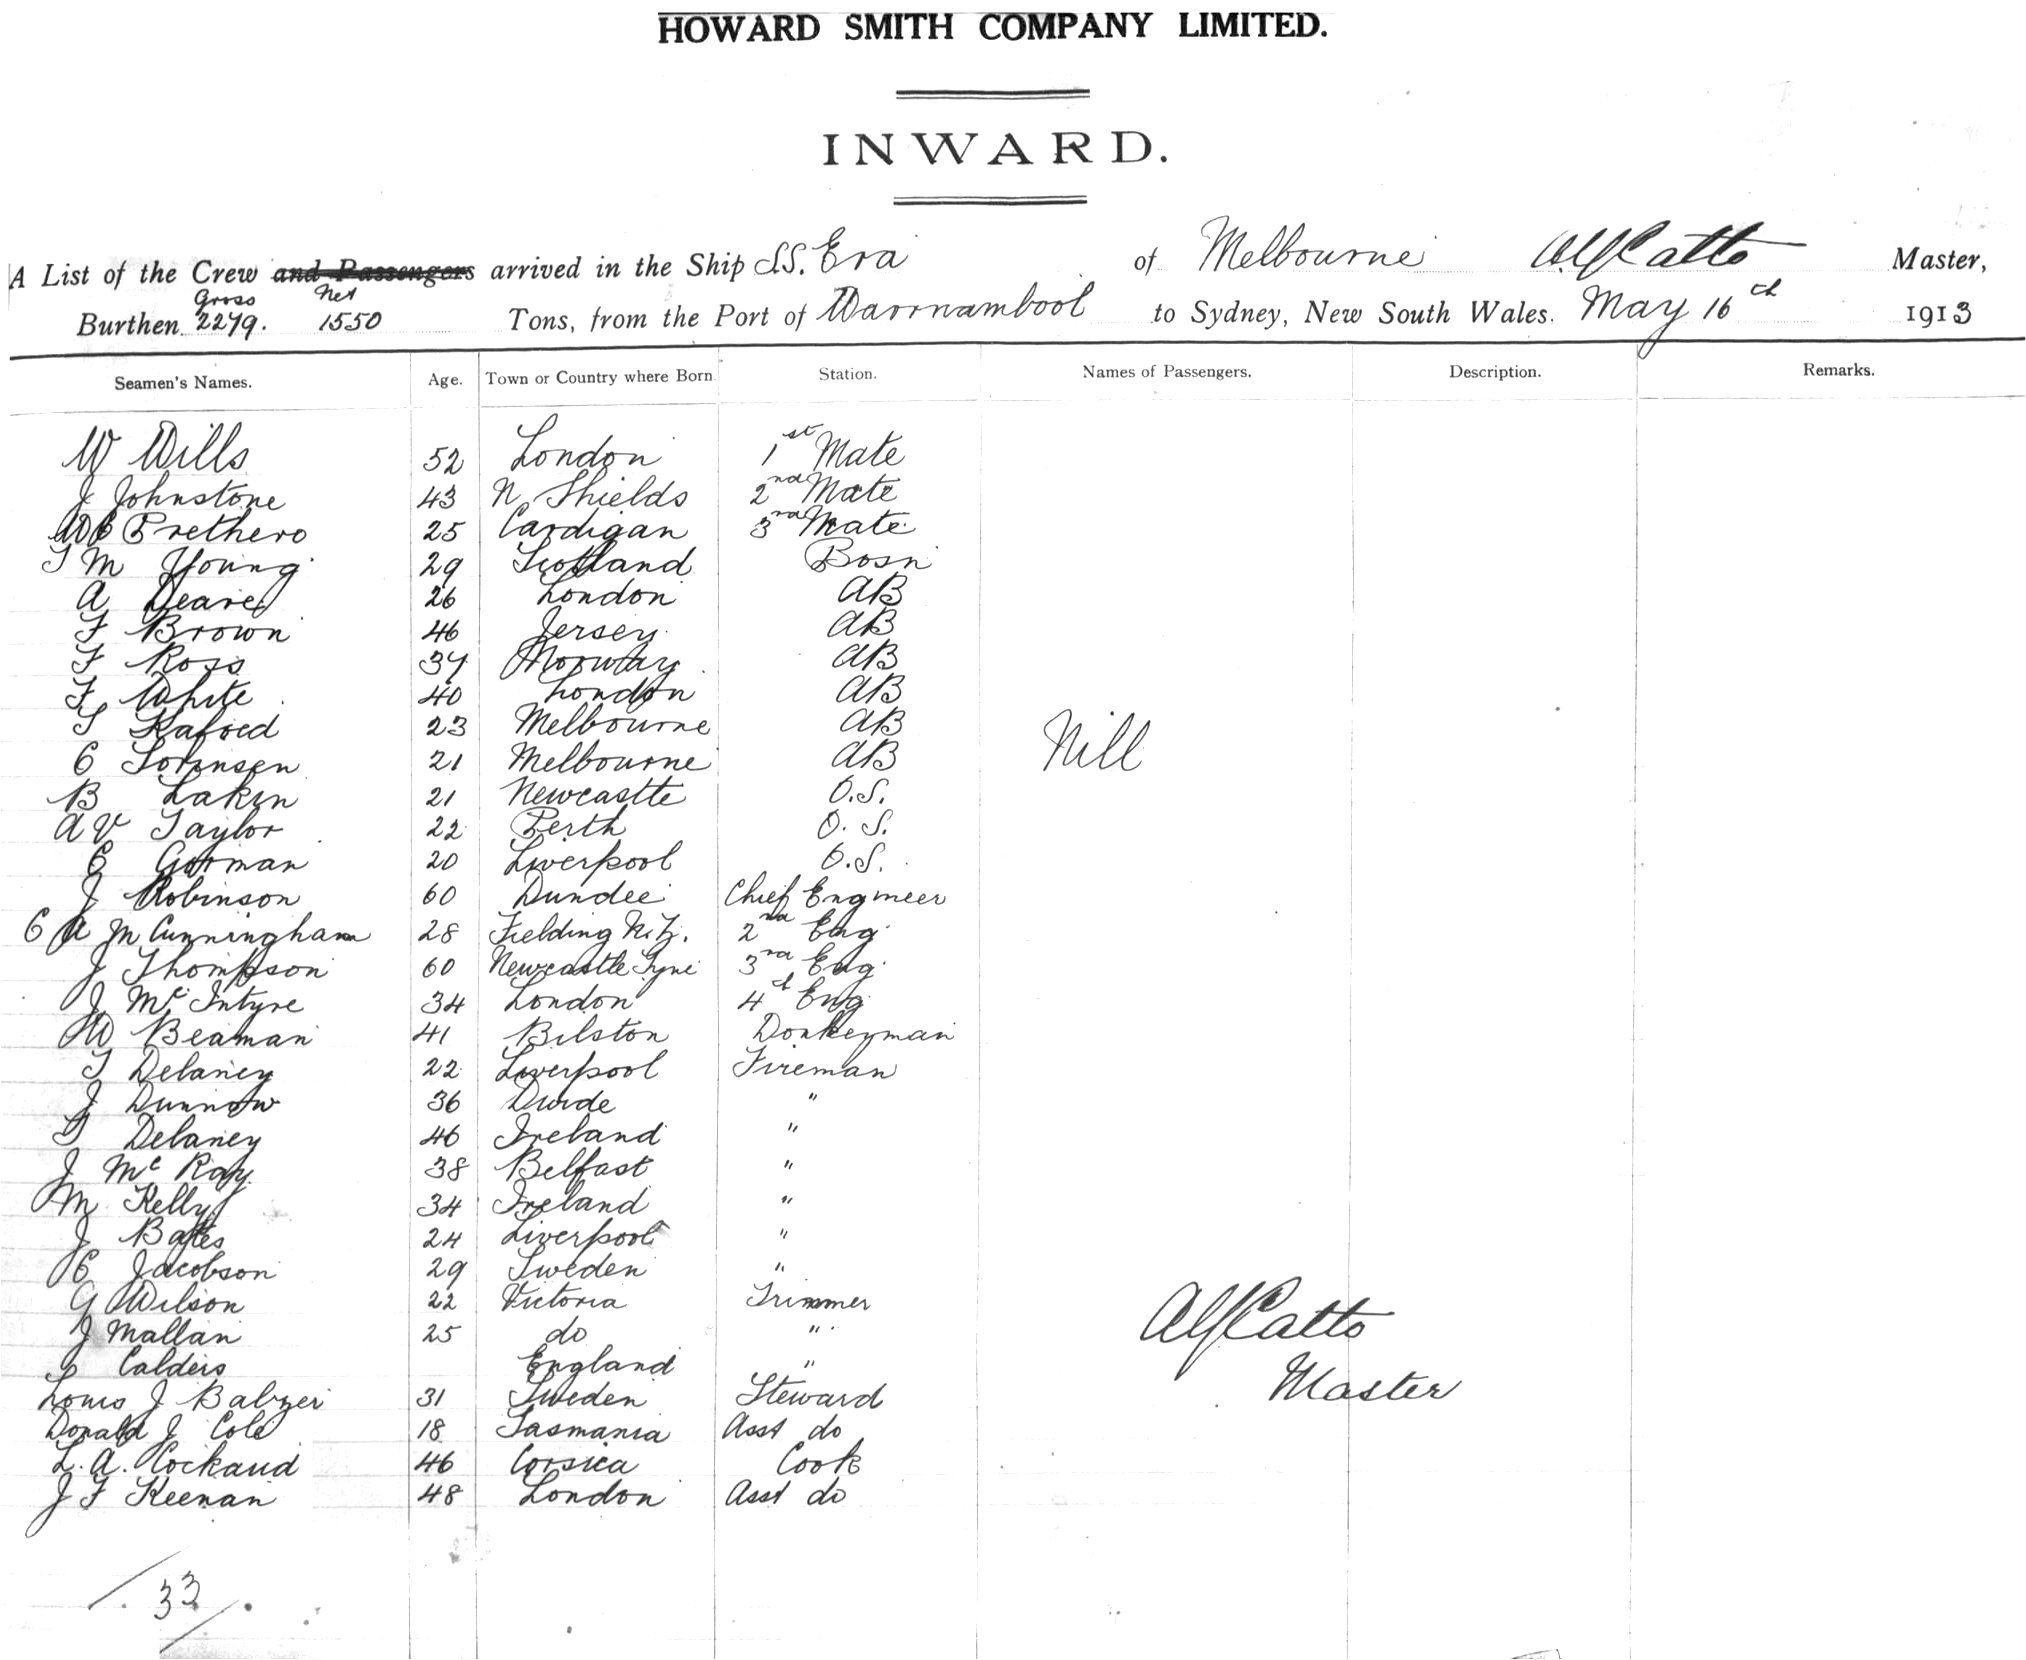 HOWARD SMITH COMPANY LIMITED.
INWARD.
A List of the Crew and Passengers arrived in the Ship SS. Era of Melbourne Alf Catto Master,
Gross Net
Burthen 2279. 1550 Tons, from the Port of Warrnambool to Sydney, New South Wales. May 16th 1913
Seamen's Names. Age. Town or Country where Born Station. Names of Passengers. Description. Remarks.
W Wills 52 London 1st Mate
J Johnstone 43 N. Shields 2nd Mate
Prethero 25 Cardigan 3rd Mate
T M Young 29 Scotland Bosn
A 26 London AB
F Brown 46 Jersey AB
F Ross 37 Norway AB
F White 40 London AB
Melbourne AB
23
Nill
C Sorinsen 21 Melbourne AB
B Lakin 21 Newcastle O.S.
A V Taylor 22 Perth O.S.
C Gorman 20 Liverpool O.S.
J Robinson 60 Dundee Chief Engineer
C A Mc Cunningham 28 Fielding N.Z. 2nd Eng
J Thompson 60 Newcastle Tyne 3rd Eng.
J McIntyre 34 London 4t Eng
W Beaman 41 Bilston Donkeyman
T Delaney 22 Liverpool Fireman
J Dunnow 36 "
T Delaney 46 Ireland "
J Mc Ray 38 Belfast "
M Kelly 34 Ireland "
J Bates 24 Liverpool "
C Jacobson 29 Sweden "
G Wilson 22 Victoria Trimmer
J Mallan 25 do "
Alf Catto
Calders England "
Master
Louis J 31 Sweden Steward
Donald J Cole 18 Tasmania Asst do
L. A. 46 Corsica Cook
J F Keenan 48 London Asst do
33